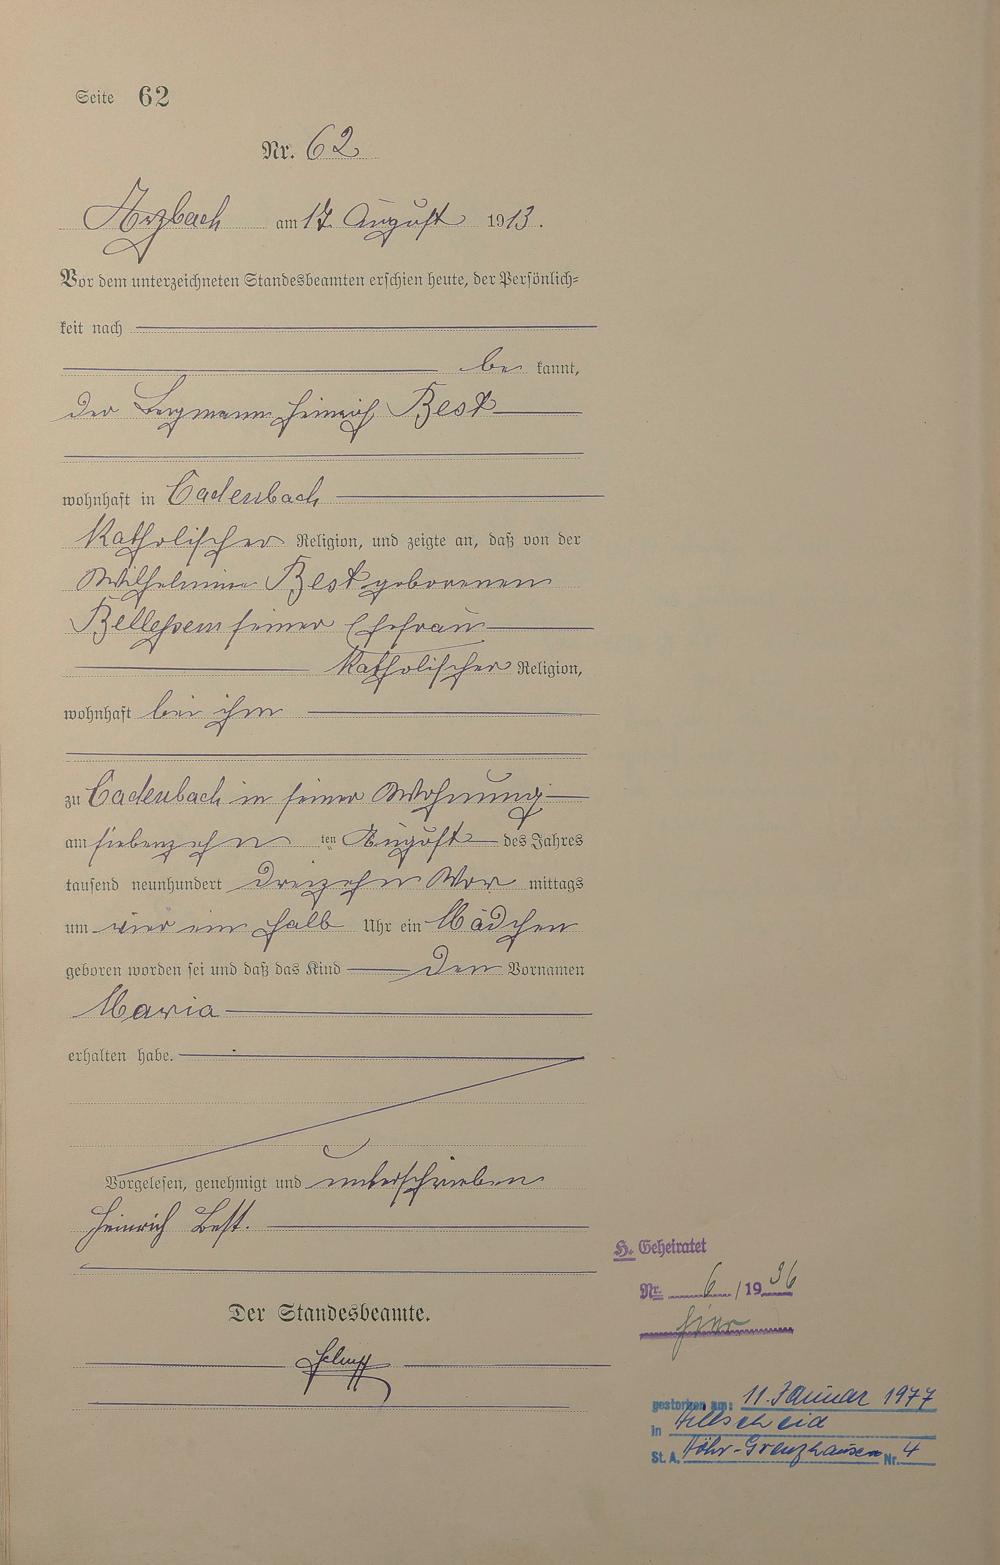 Seite 62
Nr. 62
Arzbach am 17. August 1913.
Vor dem unterzeichneten Standesbeamten erschien heute, der Persönlich-
keit nach
be kannt,
der Bergmann Heinrich Best
wohnhaft in Cadenbach
katholischer Religion, und zeigte an, daß von der
Wilhelmine Best geborenen
seiner Ehefrau
katholischer Religion,
wohnhaft bei ihm
zu Cadenbach in seiner Wohnung
am siebenzehn ten August des Jahres
tausend neunhundert dreizehn Vor mittags
um vier ein halb Uhr ein Mädchen
geboren worden sei und daß das Kind den Vornamen
Maria
erhalten habe.
Vorgelesen, genehmigt und unterschrieben
Heinrich Best.
Der Standesbeamte.
H. Geheiratet
Nr. 6 / 1936
hier
gestorben am: 11. Januar 1977
in Hillscheid
St. A. Höhr-Grenzhausen Nr. 4